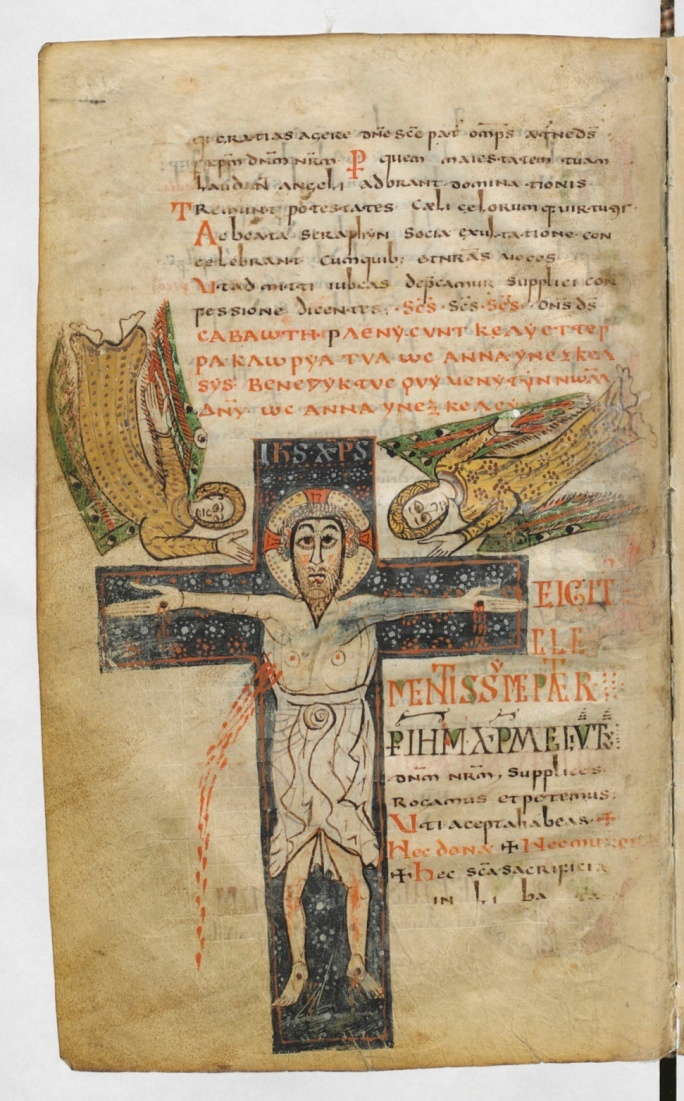 gracias agere dñe sc̄e pat̄ om̄ps æt̄ne ds̄
p xp̄m dnm̄ nr̄m P quem maiestatem tuam
laudan̄ angeli adorant dominationis
Tremunt potestates Cæli cęlorum q̨uirtutes
Ac beata seraphyn socia exultatione con
celebrant Cum quib; et nr̄as uoces
Ut admitti iubeas dep̄camur supplici con
fessione dicentes. Sc̄s Sc̄s Sc̄s dn̄s ds̄
CABAWTH PΛENY CVNT
TVA WC ANNA YN
SYS BENEDYKTVC QVY VENYT YN NWM̄
ΔNY WC ANNA YN
IHS XPS
E IGIT
CLE
MENTISSYME PAT̄ER
P IHM XPM FILIUM
dnm̄ nr̄m, supplices
Rogamus et petemus
Uti acepta habeas ✠
Hec dona ✠ Hec munera
✠ hec sc̄a sacrificia
in li ba ta